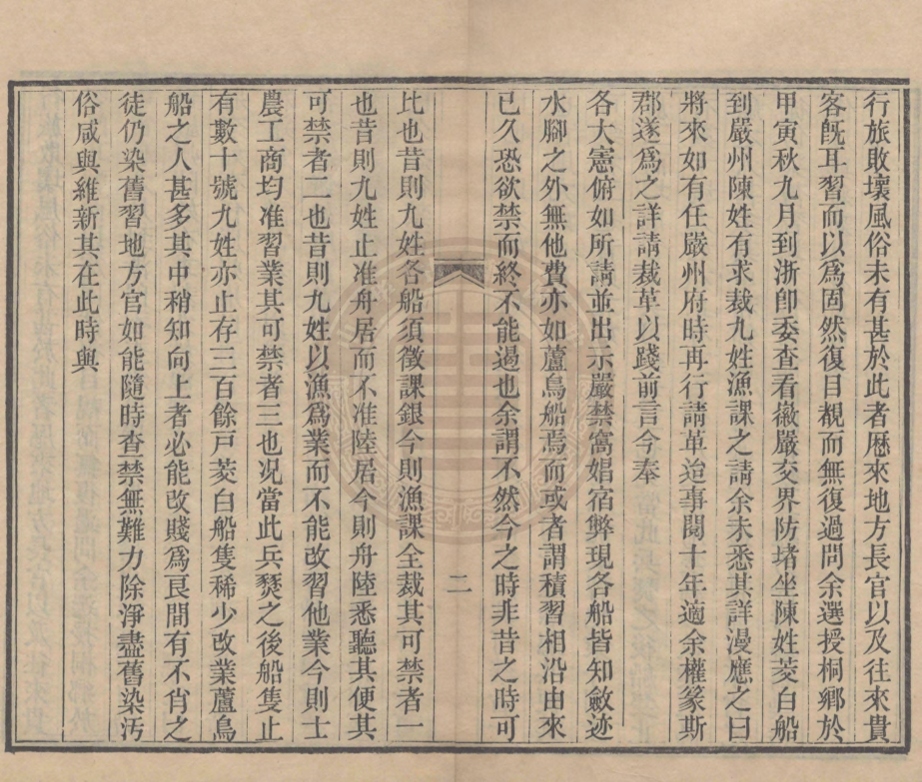 行旅敗壞風俗未有甚於此者歷來地方長官以及往來貴
客旣耳習而以爲固然復目覩而無復過問余選授桐鄉於
甲寅秋九月到浙卽委查看徽嚴交界防堵坐陳姓茭白船
到嚴州陳姓有求裁九姓漁課之請余未悉其詳漫應之曰
將來如有任嚴州府時再行請革迨事閱十年適余權篆斯
郡遂爲之詳請裁革以踐前言今奉
各大憲俯如所請並出示嚴禁窩娼宿弊現各船皆知斂迹
水腳之外無他費亦如蘆鳥船焉而或者謂積習相沿由來
已久恐欲禁而終不能遏也余謂不然今之時非昔之時可
二
比也昔則九姓各船須徵課銀今則漁課全裁其可禁者一
也昔則九姓止准舟居而不准陸居今則舟陸悉聽其便其
可禁者二也昔則九姓以漁爲業而不能改習他業今則士
農工商均准習業其可禁者三也况當此兵燹之後船隻止
有數十號九姓亦止存三百餘戸茭白船隻稀少改業蘆鳥
船之人甚多其中稍知向上者必能改賤爲良間有不肖之
徒仍染舊習地方官如能隨時查禁無難力除淨盡舊染汚
俗咸與維新其在此時與